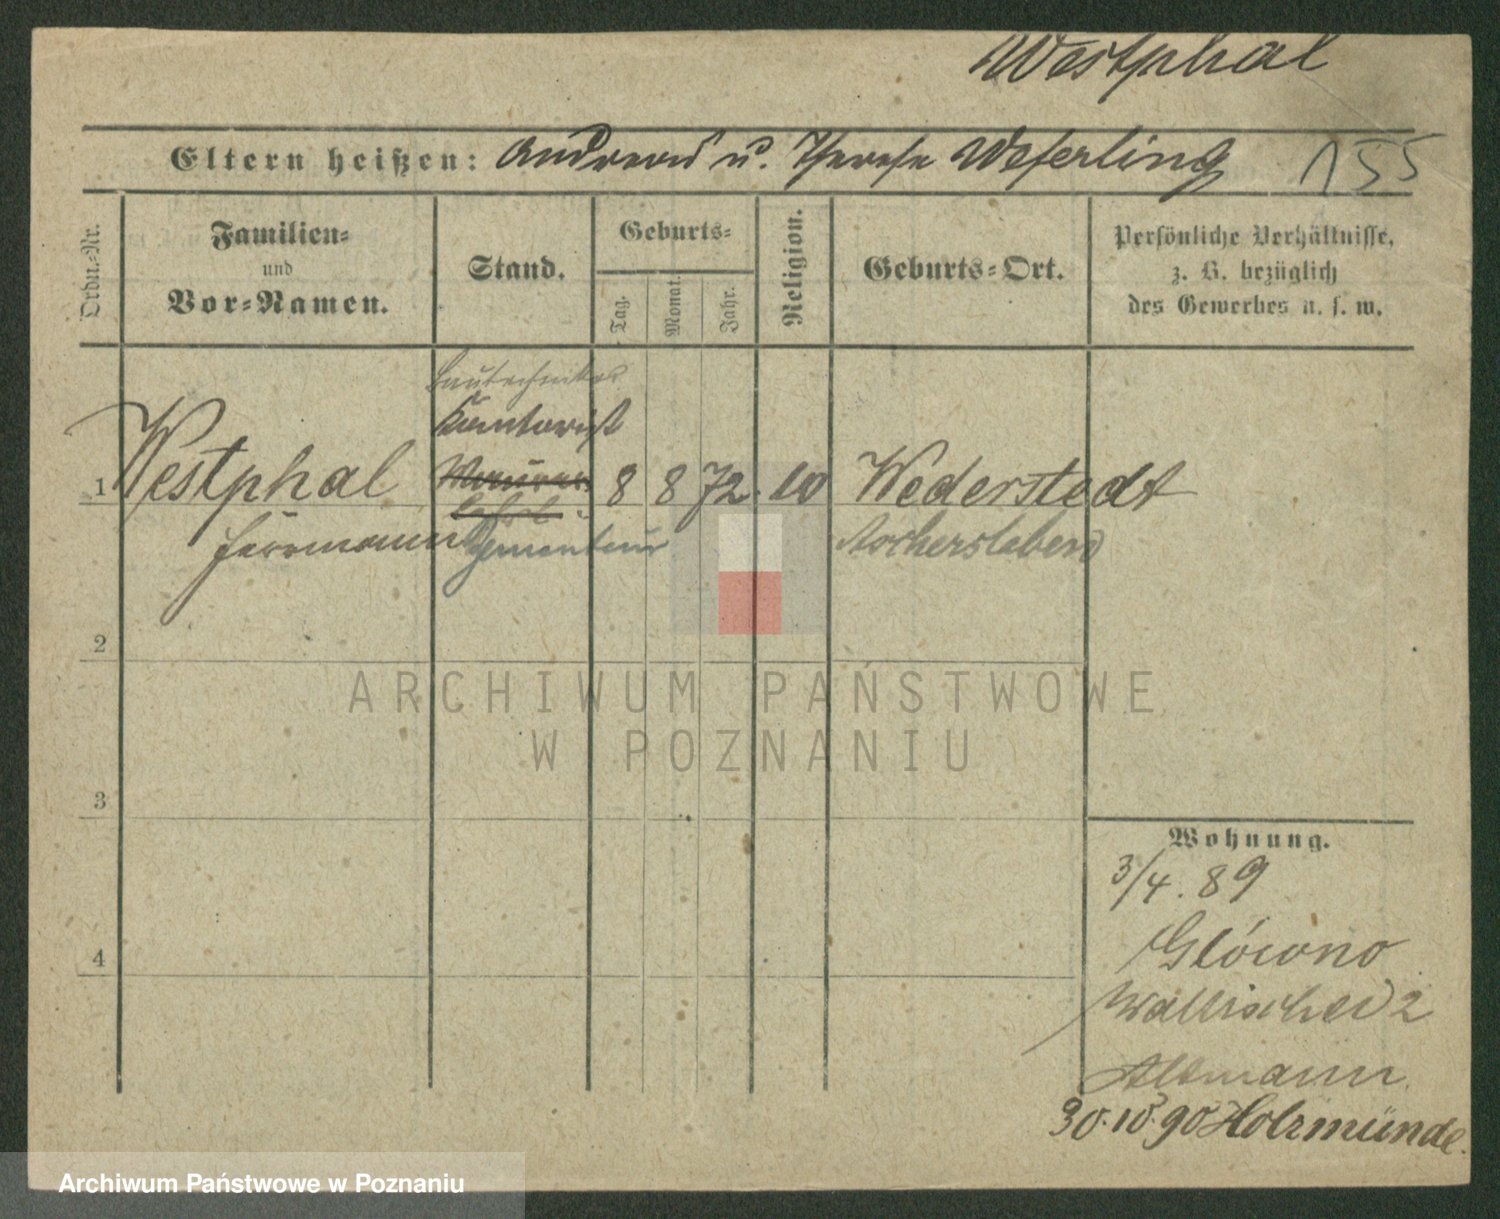 Westphal
Eltern heißen: Andreas u. Therese Weferling 155
Ordn.-Nr.
Familien-
und
Vor-Namen.
Stand.
Geburts-
Tag.
Monat.
Jahr.
Religion.
Geburts-Ort.
Persönliche Verhältnisse,
z. B. bezüglich
des Gewerbes u. s. w.
Bautechniker
Kontorist
1 Westphal Maurer 8 8 72 Wederstedt
lehrl.
Herrmann Aschersleben
2
3
4
Wohnung.
3/4. 89
Glówno
Wallischei 2
Altmann
30.10.90 Holzmünde.
ARCHIWUM PAŃSTWOWE
W POZNANIU
Archiwum Państwowe w Poznaniu